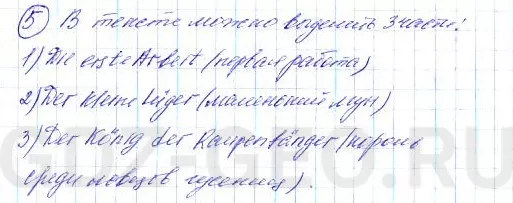 5 В тексте можно выделить 3 части:
1) Die erste Arbeit (первая работа)
2) Der kleine Lüger (маленький лгун)
3) Der König der Raupenfänger (король
среди ловцов гусениц).